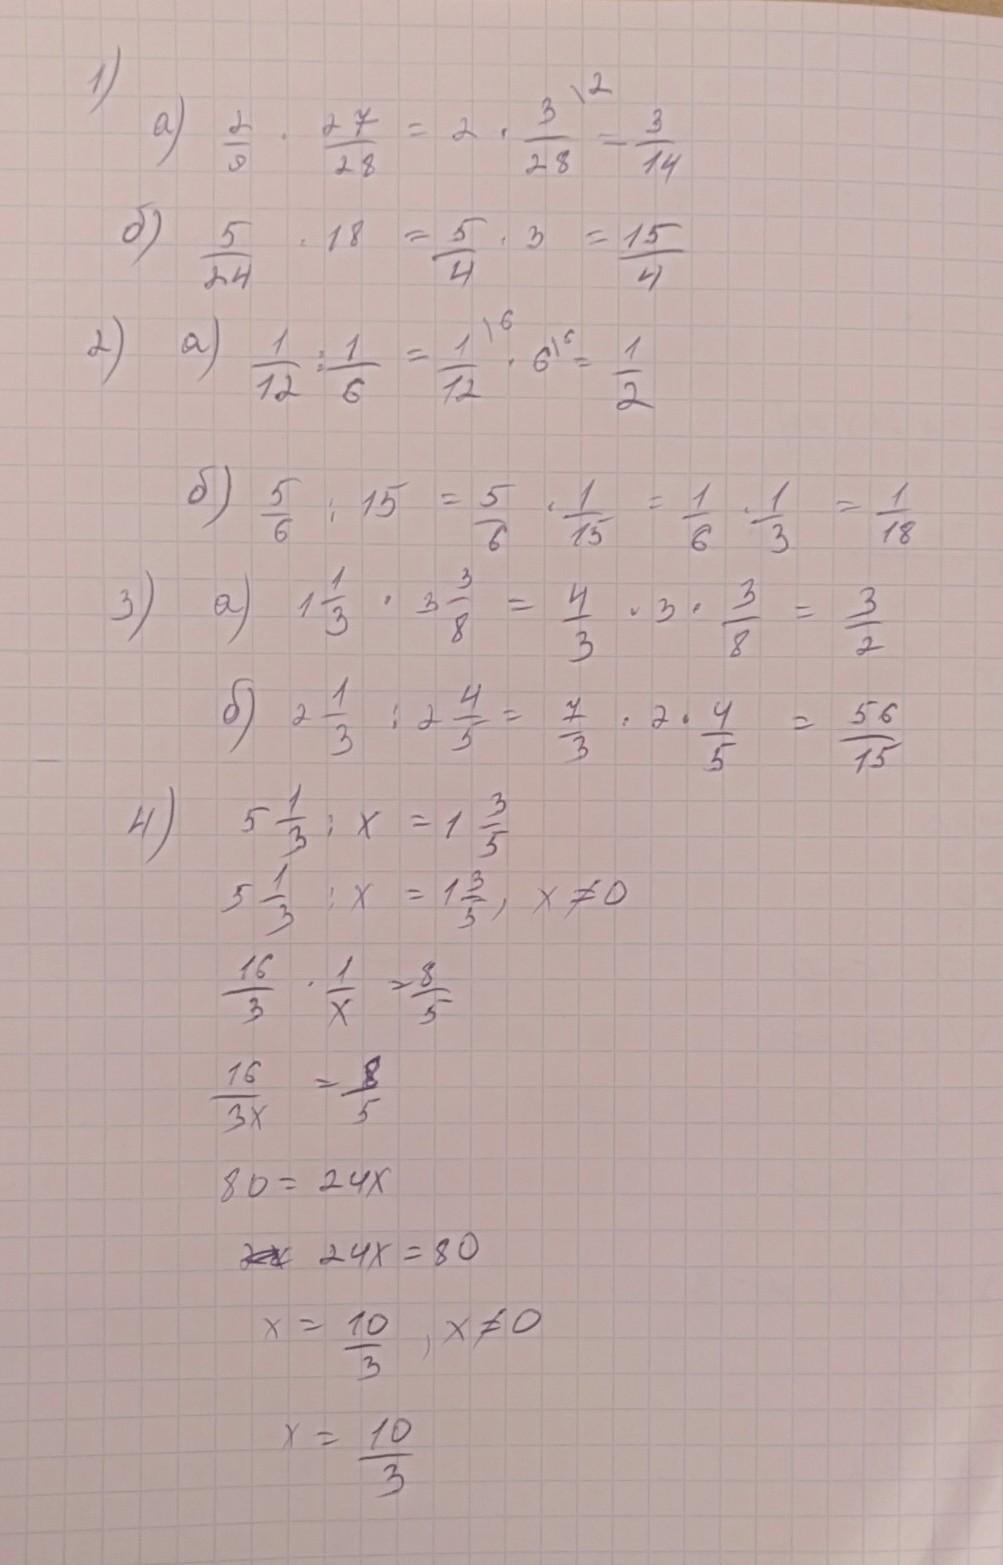 1)
а) 2/9 · 27/28 = 2 · 3/28 \2 = 3/14
б) 5/24 · 18 = 5/4 · 3 = 15/4
2) а) 1/12 : 1/6 = 1/12 \6 · 6 \6 = 1/2
б) 5/6 : 15 = 5/6 · 1/15 = 1/6 · 1/3 = 1/18
3) а) 1 1/3 · 3 3/8 = 4/3 · 3 · 3/8 = 3/2
б) 2 1/3 : 2 4/5 = 7/3 · 2 · 4/5 = 56/15
4) 5 1/3 : x = 1 3/5
5 1/3 : x = 1 3/5, x ≠ 0
16/3 · 1/x = 8/5
16/3x = 8/5
80 = 24x
24x = 80
x = 10/3, x ≠ 0
x = 10/3